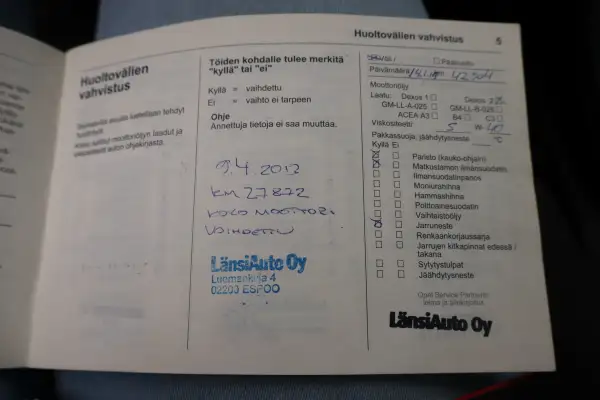 Huoltovälien vahvistus 5
Huoltovälien
vahvistus
Töiden kohdalle tulee merkitä
"kyllä" tai "ei"
Kyllä = vaihdettu
Ei = vaihto ei tarpeen
Ohje
Annettuja tietoja ei saa muuttaa.
9.4.2013
KM 27872
KOKO MOOTTORI
VAIHDETTU
LänsiAuto Oy
Luomankuja 4
02200 ESPOO
Päivämäärä
Moottoriöljy
Laatu: Dexos 1 Dexos 2
GM-LL-A-025 GM-LL-B-025
ACEA A3 B4 C3
Viskositeetti 5 W- 40
Pakkassuoja, jäähdytysneste °C
Kyllä Ei
Paristo (kauko-ohjain)
Matkustamon ilmansuodatin
Ilmansuodatinpanos
Moniurahihna
Hammashihna
Polttoainesuodatin
Vaihteistoöljy
Jarruneste
Renkaankorjaussarja
Jarrujen kitkapinnat edessä /
takana
Sytytystulpat
Jäähdytysneste
Opel Service Partnerin
leima ja allekirjoitus
LänsiAuto Oy